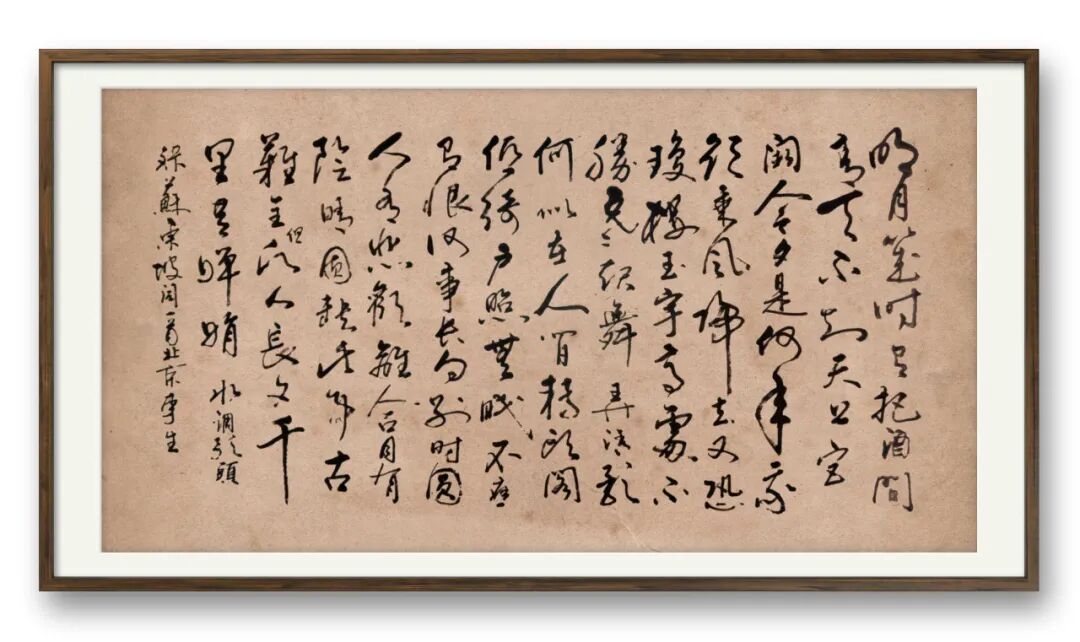 明月幾时有把酒問
青天不知天上宫
闕今夕是何年我
欲乘風歸去又恐
瓊樓玉宇高處不
勝寒起舞弄清影
何似在人間轉朱閣
低綺户照無眠不應
有恨何事長向别时圓
人有悲歡離合月有
陰晴圓缺此事古
難全但願人長久千
里共嬋娟 水調歌頭
蘇東坡詞一首北京